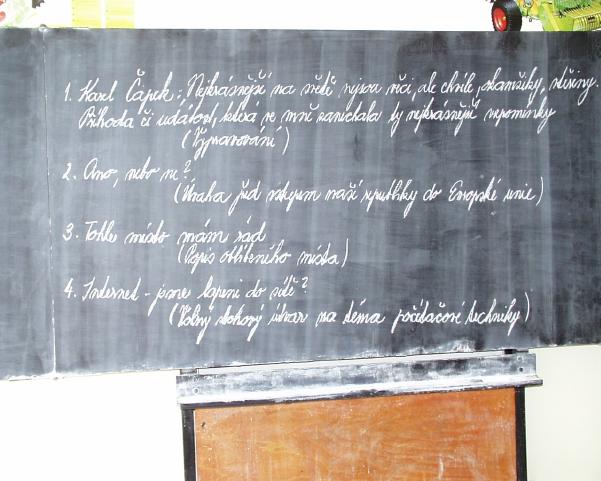 1. Karel Čapek: „Nejkrásnější na světě nejsou věci, ale chvíle, okamžiky, vteřiny.
Příhoda či událost, která ve mně zanechala ty nejkrásnější vzpomínky
(Vypravování)
2. Ano, nebo ne?
(Úvaha před vstupem naší republiky do Evropské unie)
3. Tohle místo mám rád
(Popis oblíbeného místa)
4. Internet - jsme lapeni do sítě?
(Volný slohový útvar na téma počítačové techniky)